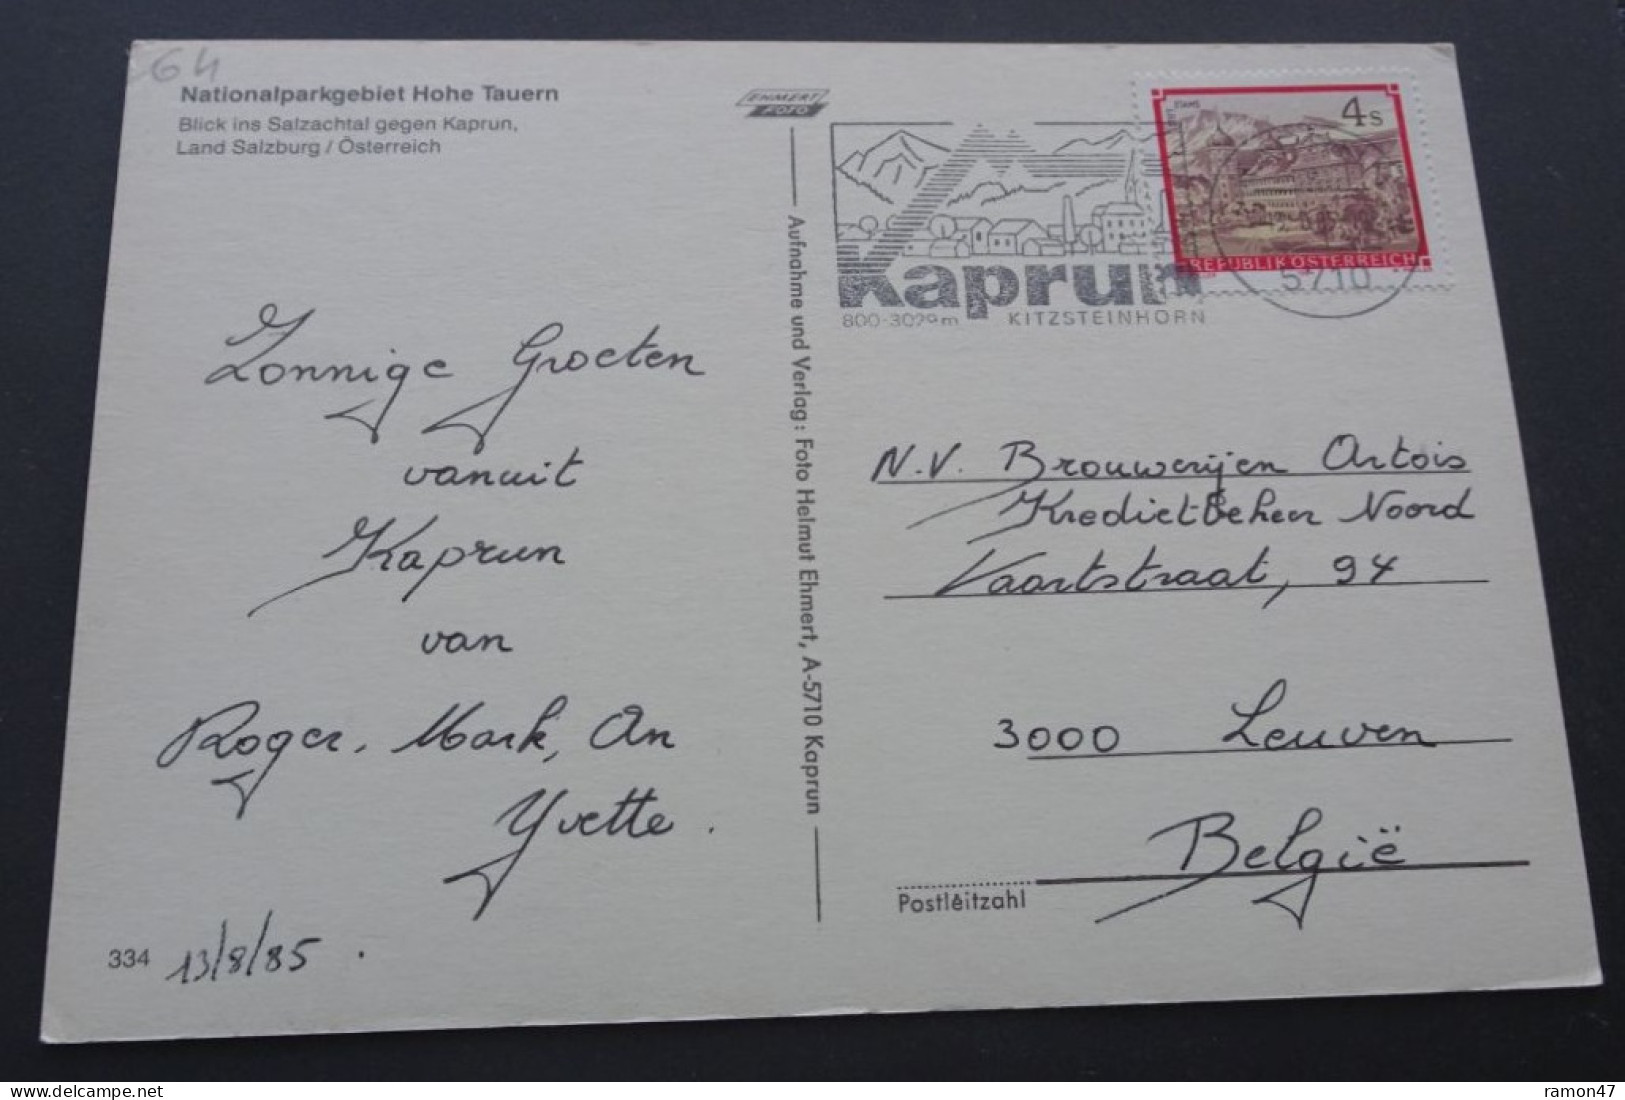 64
Nationalparkgebiet Hohe Tauern
Blick ins Salzachtal gegen Kaprun,
Land Salzburg / Österreich
EHMERT
FOTO
Kaprun
800-3029m KITZSTEINHORN
STAMS
4s
REPUBLIK ÖSTERREICH
5710
Aufnahme und Verlag: Foto Helmut Ehmert, A-5710 Kaprun
Zonnige Groeten
vanuit
Kaprun
van
Roger, Mark, An
Yvette.
334 13/8/85.
N.V. Brouwerijen Artois
Kredietbeheer Noord
Vaartstraat, 94
3000 Leuven
België
Postleitzahl
delcampe.net
ramon47